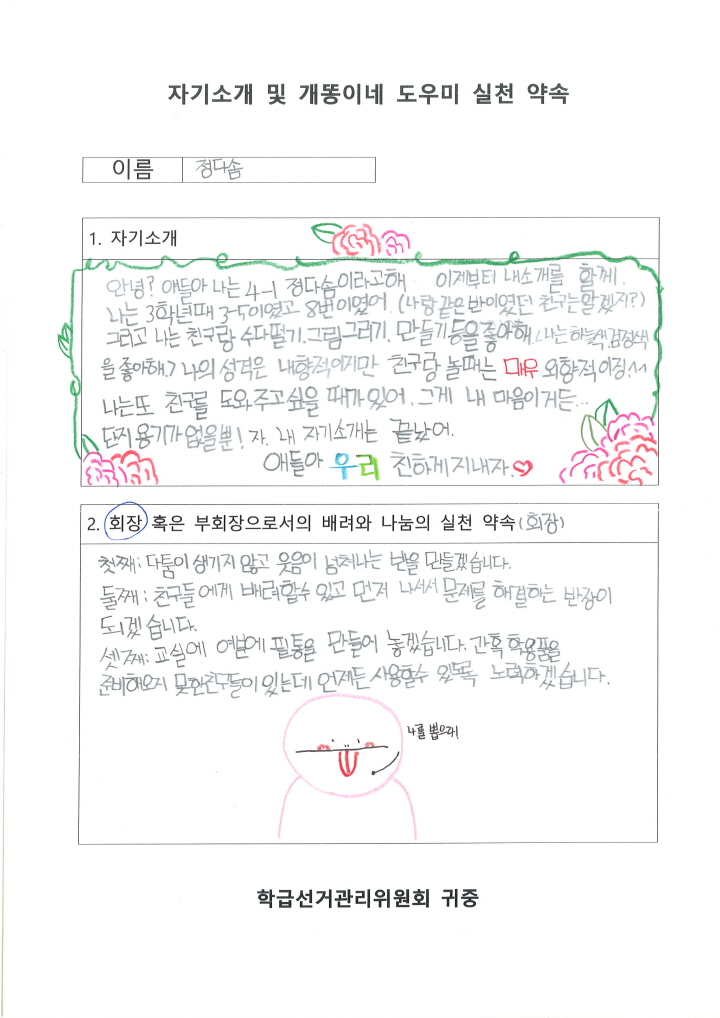 자기소개 및 개똥이네 도우미 실천 약속
이름 정다솜
1. 자기소개
안녕? 얘들아 나는 4-1 정다솜이라고해. 이제부터 내소개를 함께.
나는 3학년때 3-5이였고 8번이였어. (나랑 같은반이였던 친구는 알겠지?)
그리고 나는 친구랑 수다떨기, 그림그리기, 만들기 등을좋아해. (나는 하늘색, 검정색
을 좋아해.) 나의 성격은 내향적이지만 친구랑 놀때는 매우 외향적이징.^^
나는또 친구를 도와주고싶을 때가있어. 그게 내 마음이거든...
단지 용기가없을뿐! 자. 내 자기소개는 끝났어.
얘들아 우리 친하게지내자.
2. 회장 혹은 부회장으로서의 배려와 나눔의 실천 약속 (회장)
첫째: 다툼이 생기지 않고 웃음이 넘쳐나는 반을 만들겠습니다.
둘째: 친구들에게 배려할수 있고 먼저 나서서 문제를 해결하는 반장이
되겠습니다.
셋째: 교실에 여분에 필통을 만들어 놓겠습니다. 간혹 학용품을
준비해오지 못한친구들이 있는데 언제든 사용할수 있도록 노력하겠습니다.
나를 뽑으라!
학급선거관리위원회 귀중